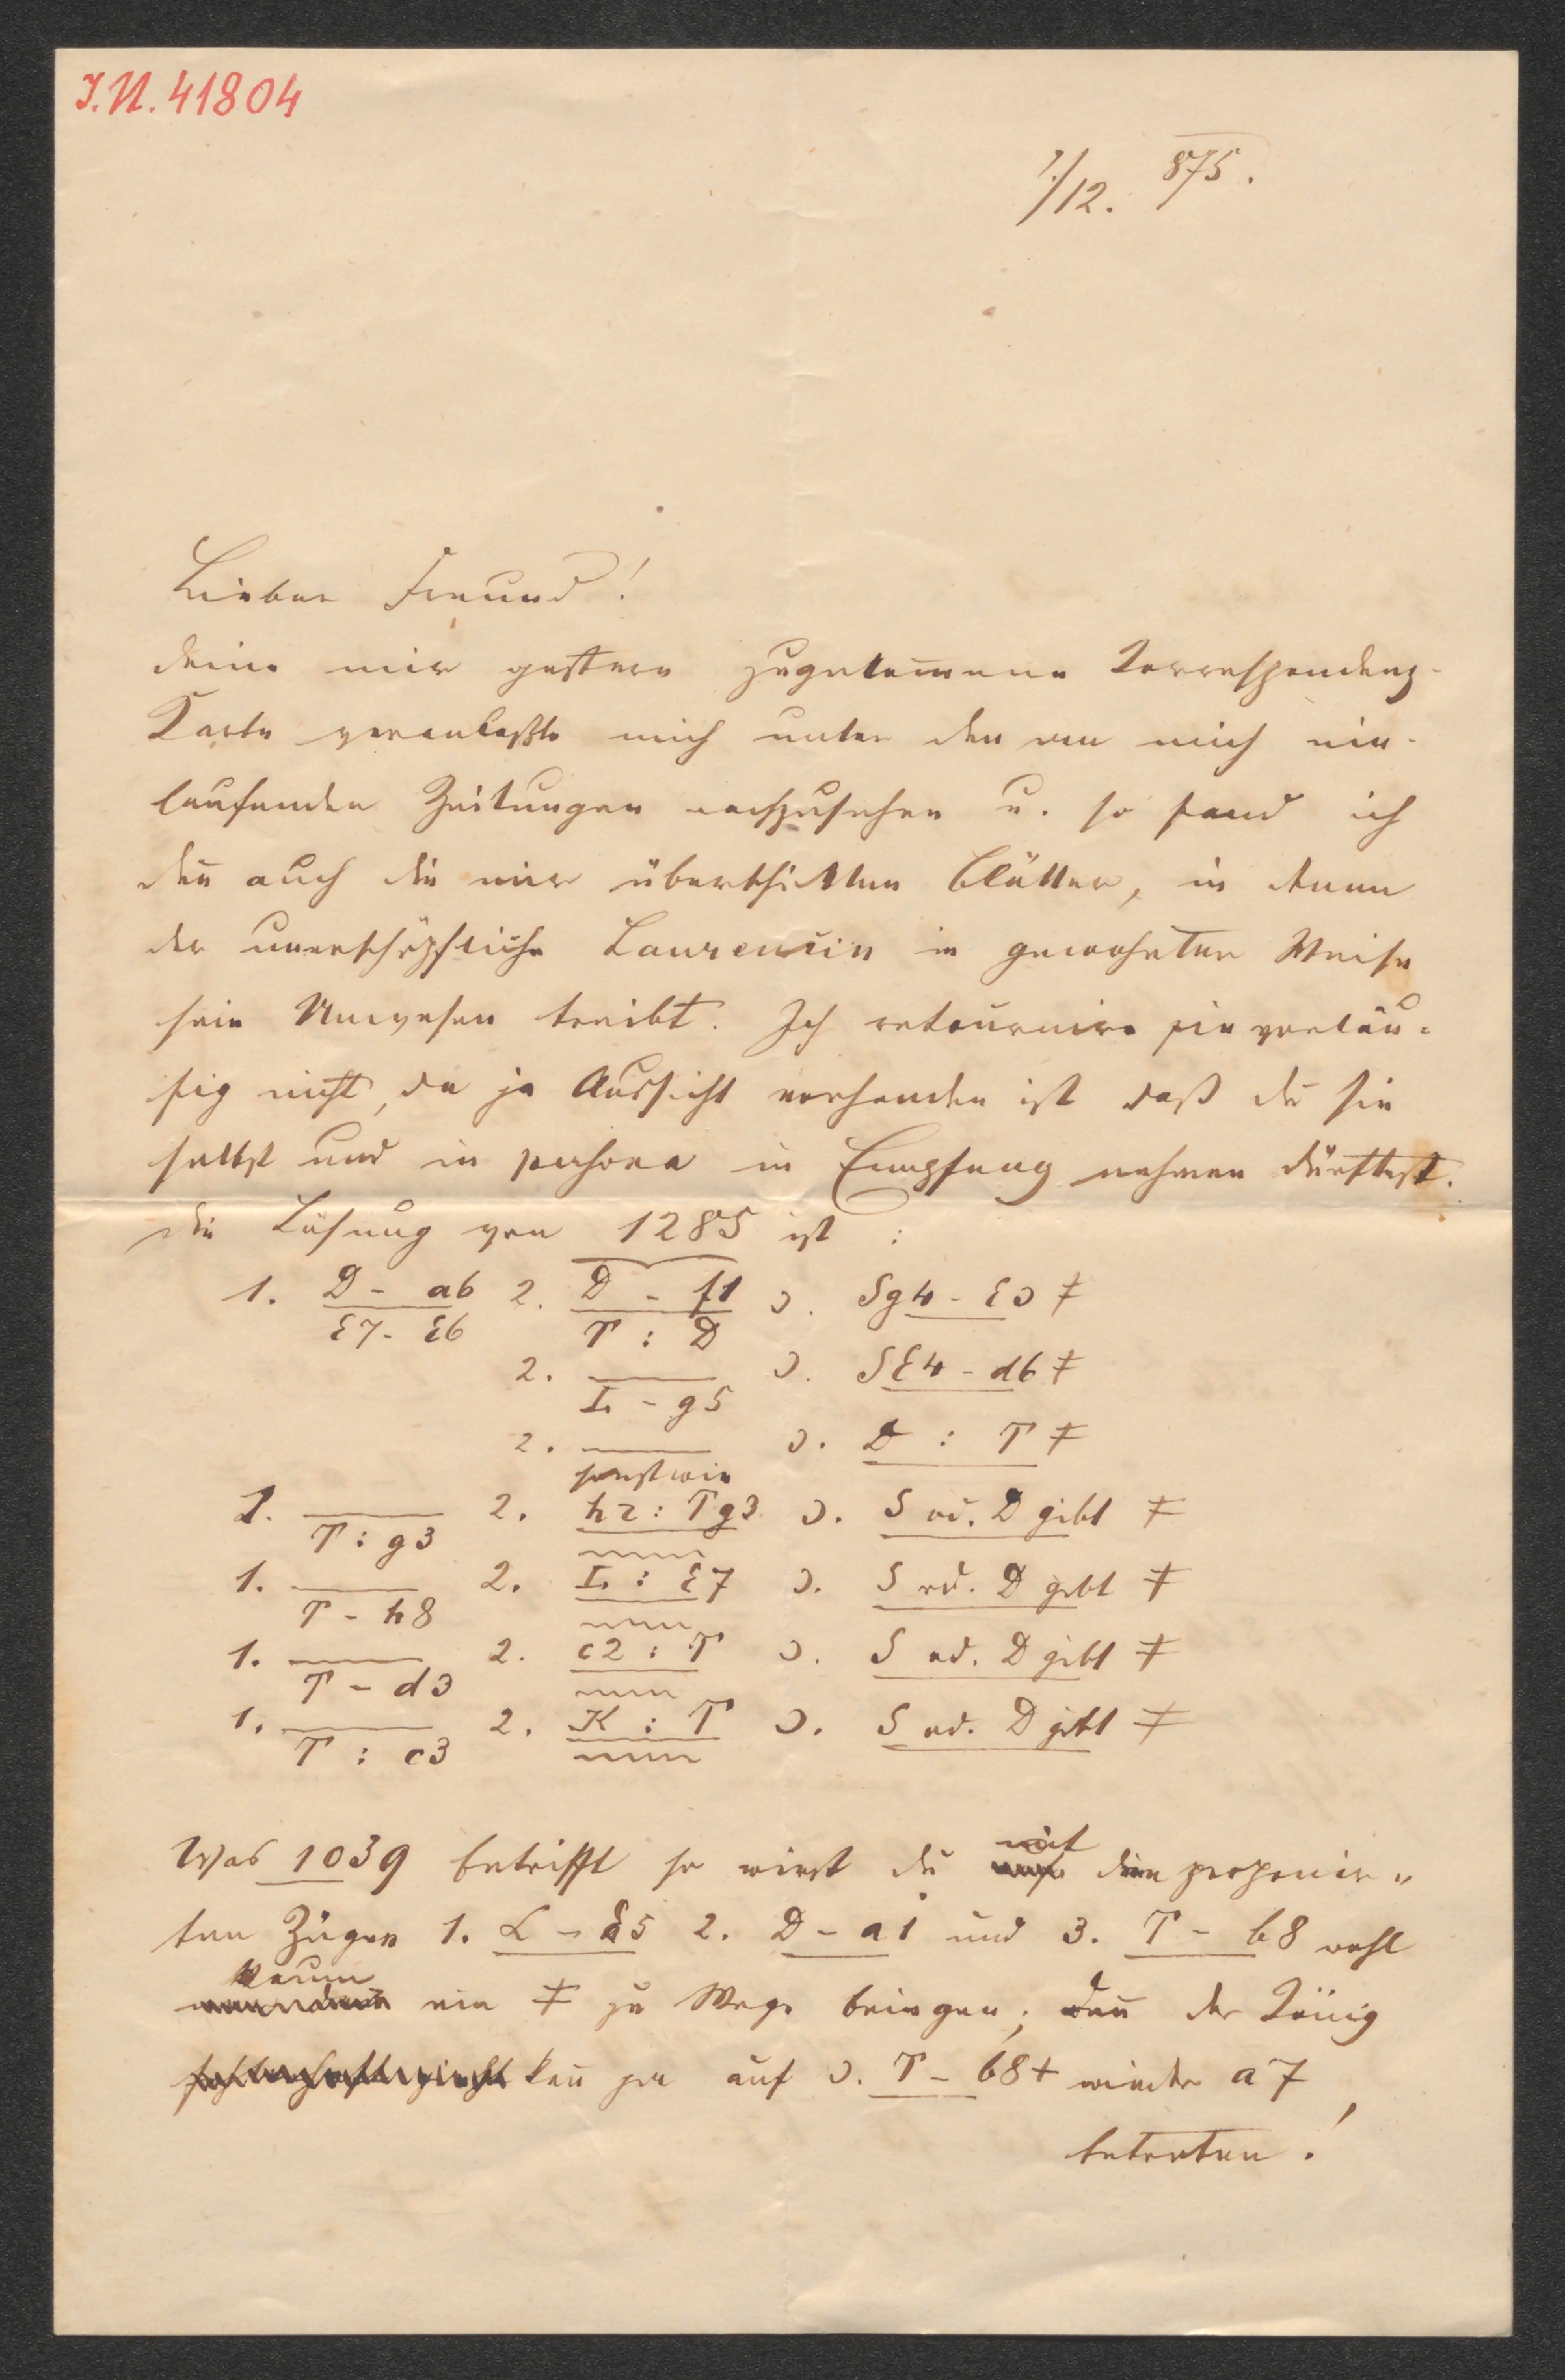 I.N. 41804
7/12. 875.
Lieber Freund!
Deine mir gestern zugekom̄ene Correspondenz-
Karte veranlaßte mich unter den an mich ein-
laufenden Zeitungen nachzusehen u. so fand ich
den̄ auch die mir überschickten Blätter, in denen
der unerschöpfliche Laurencin in gewohnter Weise
sein Unwesen treibt. Ich retournire sie vorläu-
fig nicht, da ja Aussicht vorhanden ist daß du sie
selbst und in persona in Empfang nehmen dürftest.
Die Lösung von 1285 ist :
1. D - a6 2. D - f1 3. Sg4 - E3 ‡
E7 - E6 T : D
2. 3. SE4 - d6 ‡
L - g5
2. 3. D : T ‡
sonst wie
1. 2. h2 : Tg3 3. S od. D gibt ‡
T : g3
1. 2. L : E7 3. S od. D gibt ‡
T - h8
1. 2. c2 : T 3. S od. D gibt ‡
T - d3
1. 2. K : T 3. S od. D gibt ‡
T : c3
Was 1039 betrifft so wirst du mit den proponir-
ten Zügen 1. L - E5 2. D - a1 und 3. T - b8 wohl
kaum ein ‡ zu Wege bringen; den̄ der König
kan̄ ja auf 3. T - b8+ wieder a7
betreten!